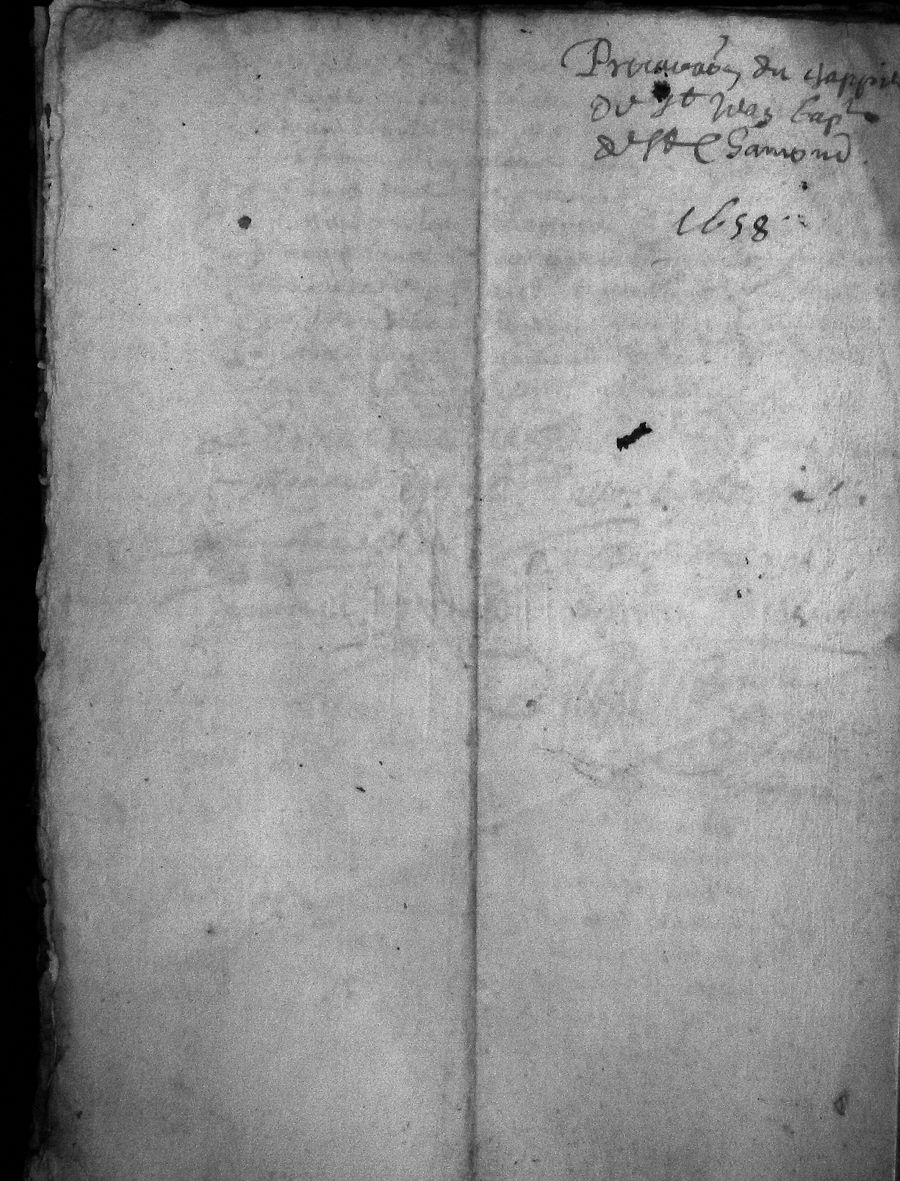 Procuraôn du chappit
de St Jean bapt
de St Chamond
1658